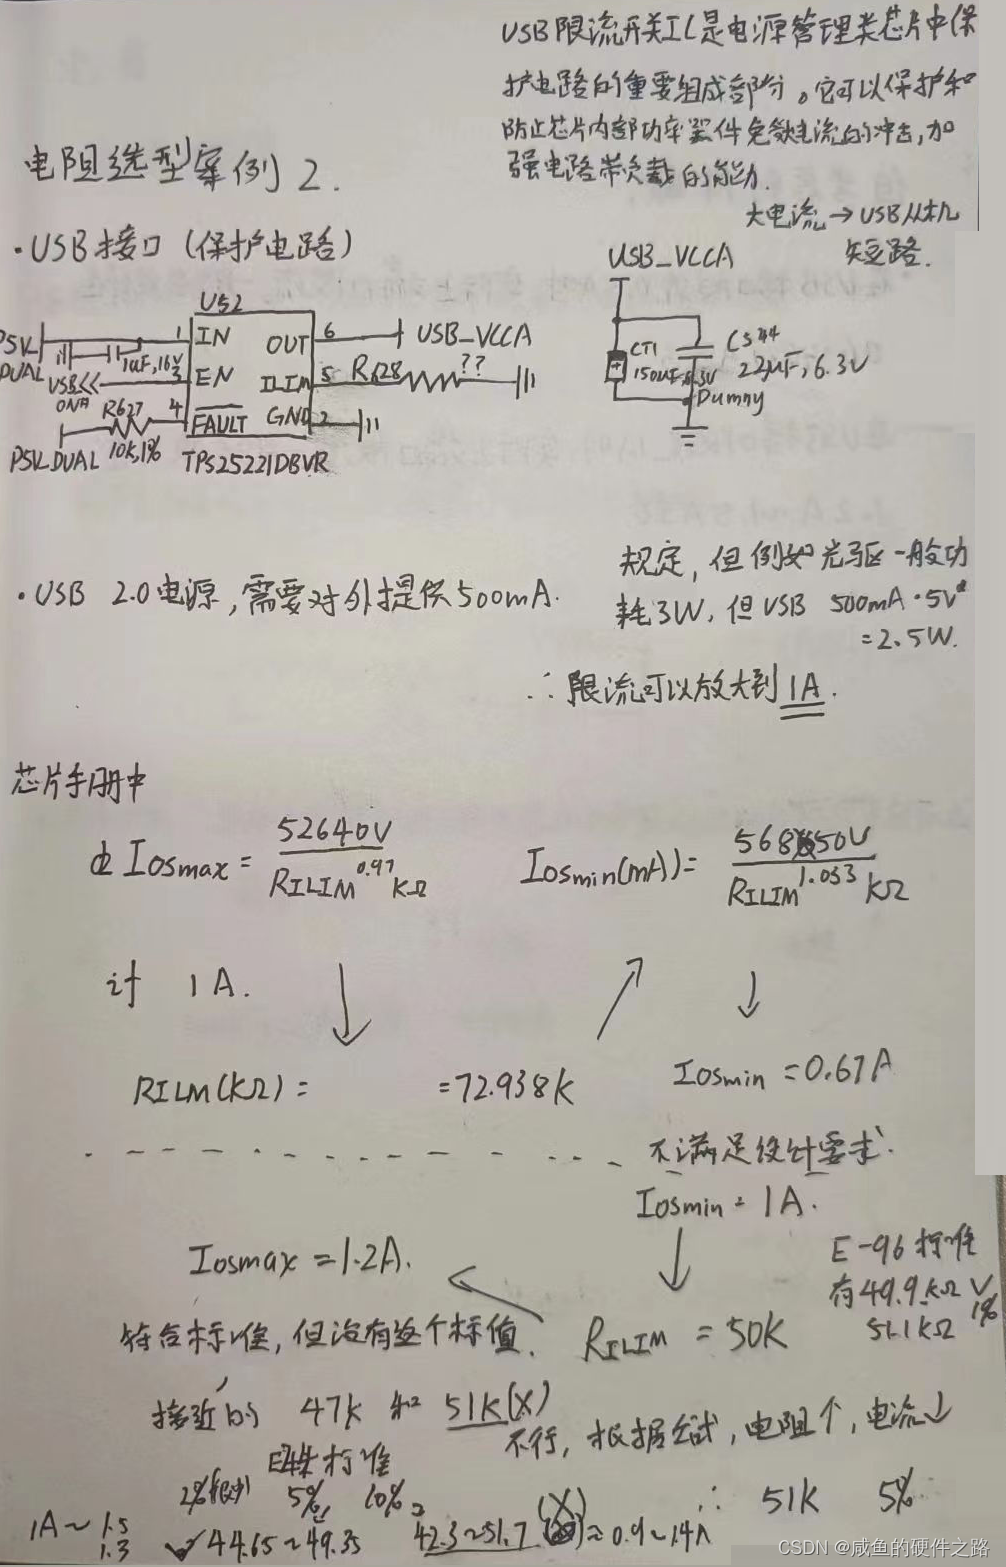 USB限流开关IC是电源管理类芯片中保
护电路的重要组成部分。它可以保护和
防止芯片内部功率器件免数电流的冲击,加
强电路带负载的能力.
大电流→USB从机
短路.
电阻选型案例2.
·USB接口(保护电路)
U52
P5V_DUAL
1uF,16V
1 IN
OUT 6
USB_VCCA
USB<<
3 EN
ILIM 5
R628
??
R627
10k,1%
4 FAULT
GND 2
P5V_DUAL
TPS25221DBVR
USB_VCCA
CT1
150uF,6.3V
C544
22uF,6.3V
Dumny
·USB 2.0电源,需要对外提供500mA.
规定,但例如光驱一般功
耗3W,但USB 500mA·5V
=2.5W.
∴限流可以放大到1A.
芯片手册中
由Iosmax= 52640V / RILIM^0.97 kΩ
Iosmin(mA)= 56850V / RILIM^1.033 kΩ
计 1A.
RILM(kΩ)= =72.938k
Iosmin=0.67A
不满足设计要求.
Iosmin=1A.
Iosmax=1.2A.
E-96标准
有49.9kΩ √
1%
51.1kΩ
符合标准,但没有这个标值.
RILIM=50K
接近的 47k 和 51k(X)
不行,根据公式,电阻↑,电流↓
标准
2% 5% 10%
∴ 51k 5%
1A~1.5
1.3
✓44.65~49.35
42.3~51.7 (X) ≈0.9~1.4A
CSDN @咸鱼的硬件之路